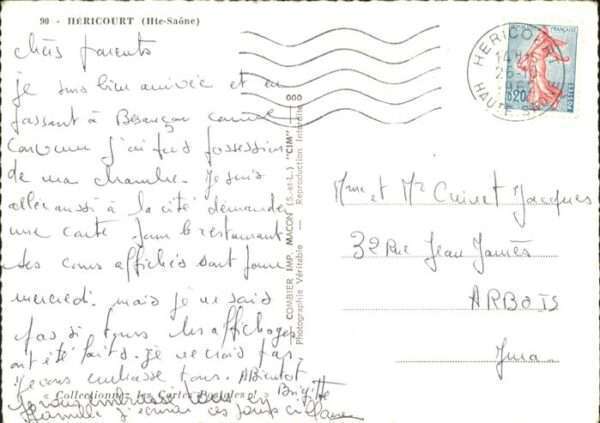 90 - HÉRICOURT (Hte-Saône)
chers parents
je suis bien arrivée et en
passant à Besançon comme
convenu j'ai pris possession
de ma chambre. Je suis
allée aussi à la cité demander
une carte pour le restaurant
des cours affichés sont pour
mercredi. mais je ne sais
pas si tous les affichages
ont été faits. Je ne crois pas.
Je vous embrasse tous. A Bientôt
Brigitte
« Collectionnez les Cartes Postales »
Je vous embrasse
famille j'écrirai ces jours ci
COMBIER IMP. MACON (S.-et-L.) "CIM"
Photographie Véritable - Reproduction Interdite
HÉRICOURT
14 H
HAUTE SAONE
FRANÇAISE
0,20
POSTES
Mme et Mr Jacques
32 Rue Jean Jaurès
ARBOIS
Jura